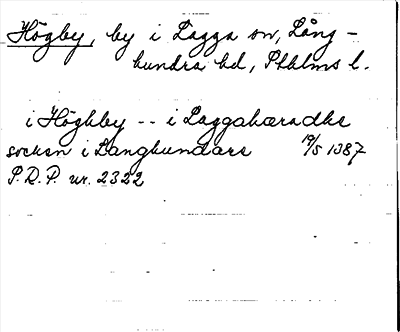 Högby, by i Lagga sn, Lång-
hundra hd, Sthlms l.
i Höghby -- i Laggahæradhs
socken i Langhundare 19/5 1387
S.R.P. nr. 2322